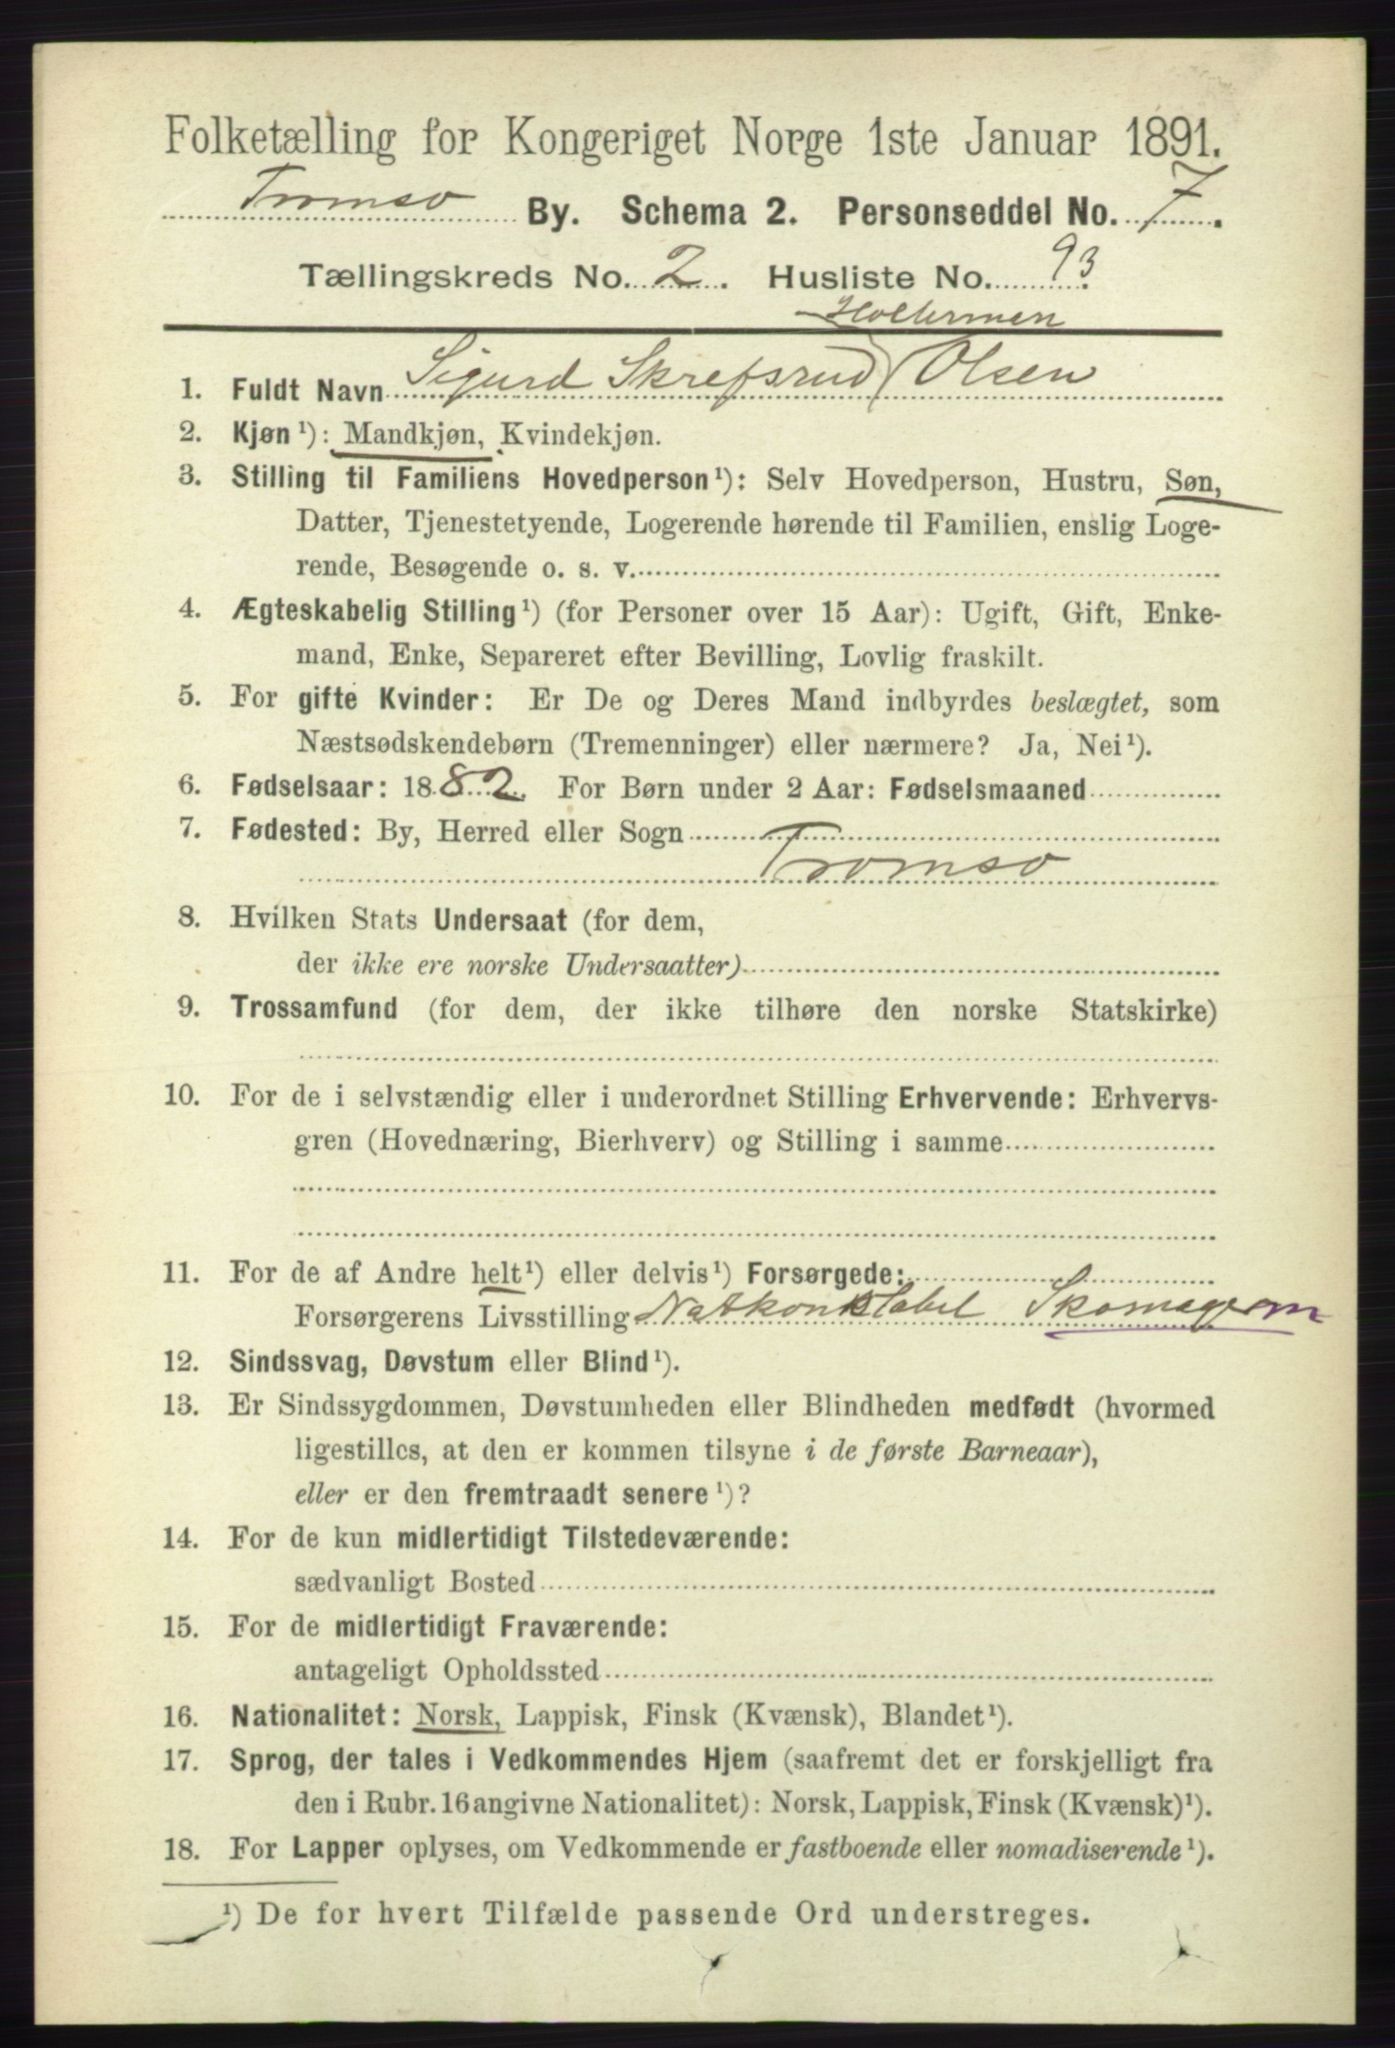 Folketælling for Kongeriget Norge 1ste Januar 1891.
Tromsø By. Schema 2. Personseddel No. 7.
Tællingskreds No. 2. Husliste No. 93.
1. Fuldt Navn Sigurd Skrefsrud Olsen
2. Kjøn ¹): Mandkjøn, Kvindekjøn.
3. Stilling til Familiens Hovedperson ¹): Selv Hovedperson, Hustru, Søn,
Datter, Tjenestetyende, Logerende hørende til Familien, enslig Loge-
rende, Besøgende o. s. v.
4. Ægteskabelig Stilling ¹) (for Personer over 15 Aar): Ugift, Gift, Enke-
mand, Enke, Separeret efter Bevilling, Lovlig fraskilt.
5. For gifte Kvinder: Er De og Deres Mand indbyrdes beslægtet, som
Næstsødskendebørn (Tremenninger) eller nærmere? Ja, Nei ¹).
6. Fødselsaar: 1882. For Børn under 2 Aar: Fødselsmaaned
7. Fødested: By, Herred eller Sogn
Tromsø
8. Hvilken Stats Undersaat (for dem,
der ikke ere norske Undersaatter)
9. Trossamfund (for dem, der ikke tilhøre den norske Statskirke)
10. For de i selvstændig eller i underordnet Stilling Erhvervende: Erhvervs-
gren (Hovednæring, Bierhverv) og Stilling i samme
11. For de af Andre helt ¹) eller delvis ¹) Forsørgede:
Forsørgerens Livsstilling Natkonstabel Skomagerm
12. Sindssvag, Døvstum eller Blind ¹).
13. Er Sindssygdommen, Døvstumheden eller Blindheden medfødt (hvormed
ligestilles, at den er kommen tilsyne i de første Barneaar),
eller er den fremtraadt senere ¹)?
14. For de kun midlertidigt Tilstedeværende:
sædvanligt Bosted
15. For de midlertidigt Fraværende:
antageligt Opholdssted
16. Nationalitet: Norsk, Lappisk, Finsk (Kvænsk), Blandet ¹).
17. Sprog, der tales i Vedkommendes Hjem (saafremt det er forskjelligt fra
den i Rubr. 16 angivne Nationalitet): Norsk, Lappisk, Finsk (Kvænsk) ¹).
18. For Lapper oplyses, om Vedkommende er fastboende eller nomadiserende ¹).
¹) De for hvert Tilfælde passende Ord understreges.